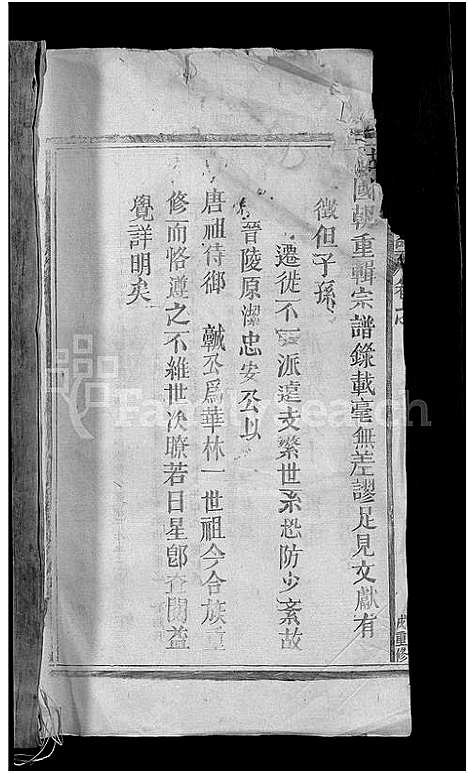 國朝重輯宗譜錄載毫無差謬足見文獻有
徵但子孫
遷徙不一派遠支繁世系恐防少紊故
晉陵原潔忠安公以
唐祖待御 公爲華林一世祖今合族重
修而恪遵之不維世次瞭若日星卽查閱益
覺詳明矣
重修
FamilySearch